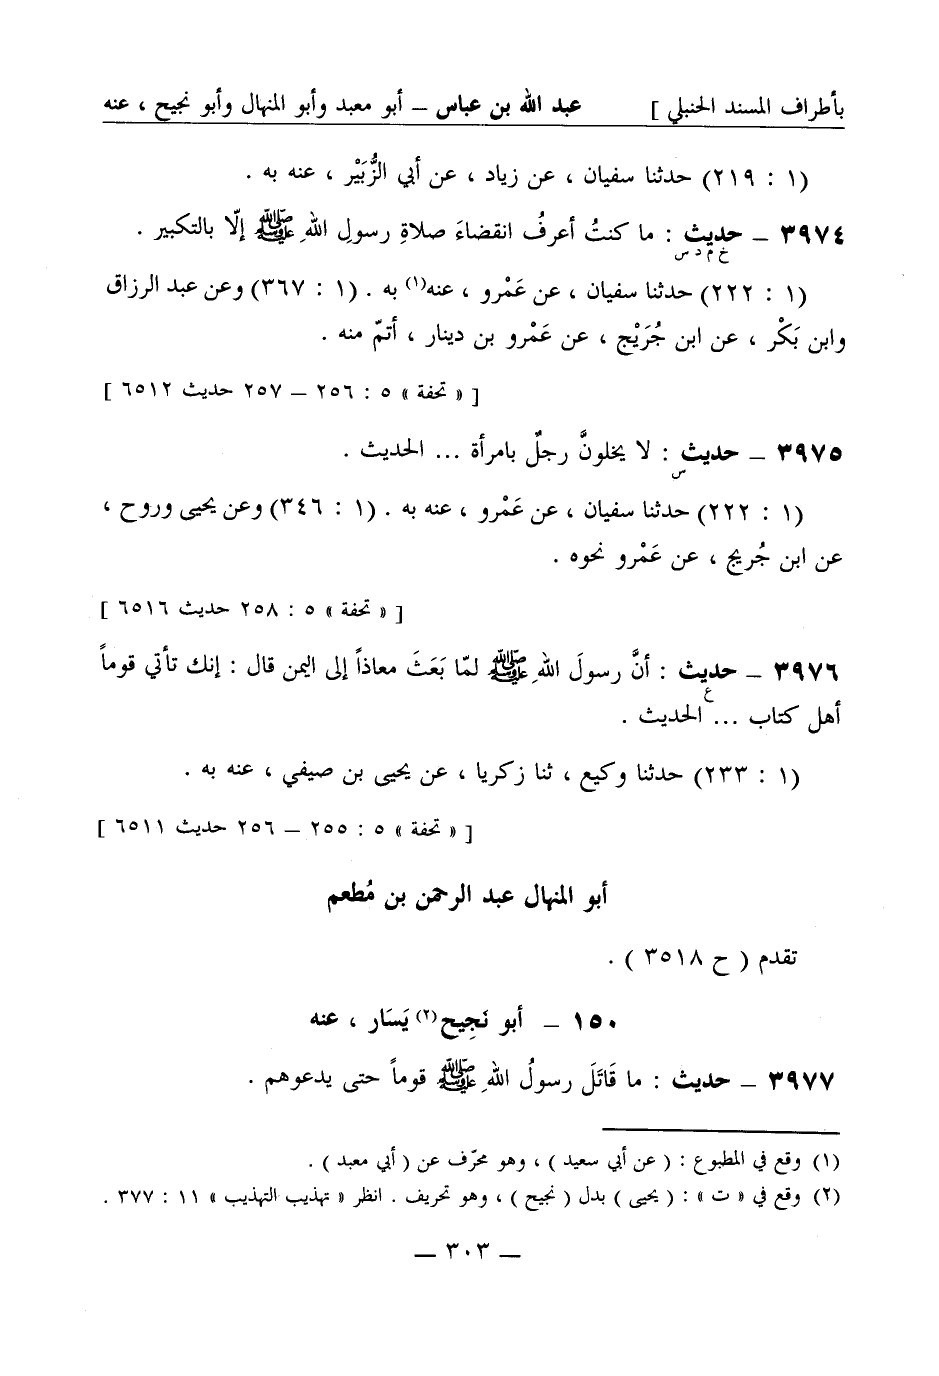 بأطراف المسند الحنبلي ] عبد الله بن عباس – أبو معبد وأبو المنهال وأبو نجيح ، عنه
(١ : ٢١٩) حدثنا سفيان ، عن زياد ، عن أبي الزُّبَيْر ، عنه به .
٣٩٧٤ – حديث : ما كنتُ أعرفُ انقضاءَ صلاةِ رسولِ اللهِ ﷺ إلّا بالتكبير .
خ م د س
(١ : ٢٢٢) حدثنا سفيان ، عن عَمْرو ، عنه(١) به . (١ : ٣٦٧) وعن عبد الرزاق
وابن بَكْر ، عن ابن جُرَيْج ، عن عَمْرو بن دينار ، أتمّ منه .
[ « تحفة » ٥ : ٢٥٦ – ٢٥٧ حديث ٦٥١٢ ]
٣٩٧٥ – حديث : لا يخلونَّ رجلٌ بامرأة ... الحديث .
س
(١ : ٢٢٢) حدثنا سفيان ، عن عَمْرو ، عنه به . (١ : ٣٤٦) وعن يحيى وروح ،
عن ابن جُريج ، عن عَمْرو نحوه .
[ « تحفة » ٥ : ٢٥٨ حديث ٦٥١٦ ]
٣٩٧٦ – حديث : أنَّ رسولَ اللهِ ﷺ لمّا بَعَثَ معاذاً إلى اليمن قال : إنك تأتي قوماً
ع
أهل كتاب ... الحديث .
(١ : ٢٣٣) حدثنا وكيع ، ثنا زكريا ، عن يحيى بن صيفي ، عنه به .
[ « تحفة » ٥ : ٢٥٥ – ٢٥٦ حديث ٦٥١١ ]
أبو المنهال عبد الرحمن بن مُطعم
تقدم ( ح ٣٥١٨ ) .
١٥٠ – أبو نَجِيح(٢) يَسَار ، عنه
٣٩٧٧ – حديث : ما قَاتَلَ رسولُ اللهِ ﷺ قوماً حتى يدعوهم .
(١) وقع في المطبوع : ( عن أبي سعيد ) ، وهو محرّف عن ( أبي معبد ) .
(٢) وقع في « ت » : ( يحيى ) بدل ( نجيح ) ، وهو تحريف . انظر « تهذيب التهذيب » ١١ : ٣٧٧ .
– ٣٠٣ –